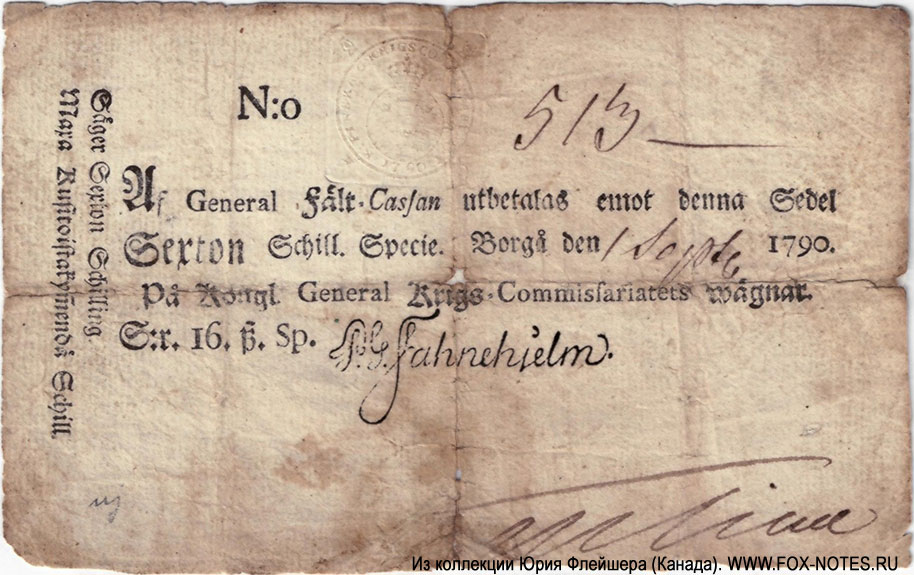 N:o 513
Af General Fält-Cassan utbetalas emot denna Sedel
Sexton Schill. Specie. Borgå den 1 Septb 1790.
På Kongl. General Krigs-Commissariatets wägnar.
S:r. 16. ß. Sp. Fahnehjelm.
Säger Sexton Schilling.
Maxa Kusitoistakymendå Schill.
Из коллекции Юрия Флейшера (Канада). WWW.FOX-NOTES.RU